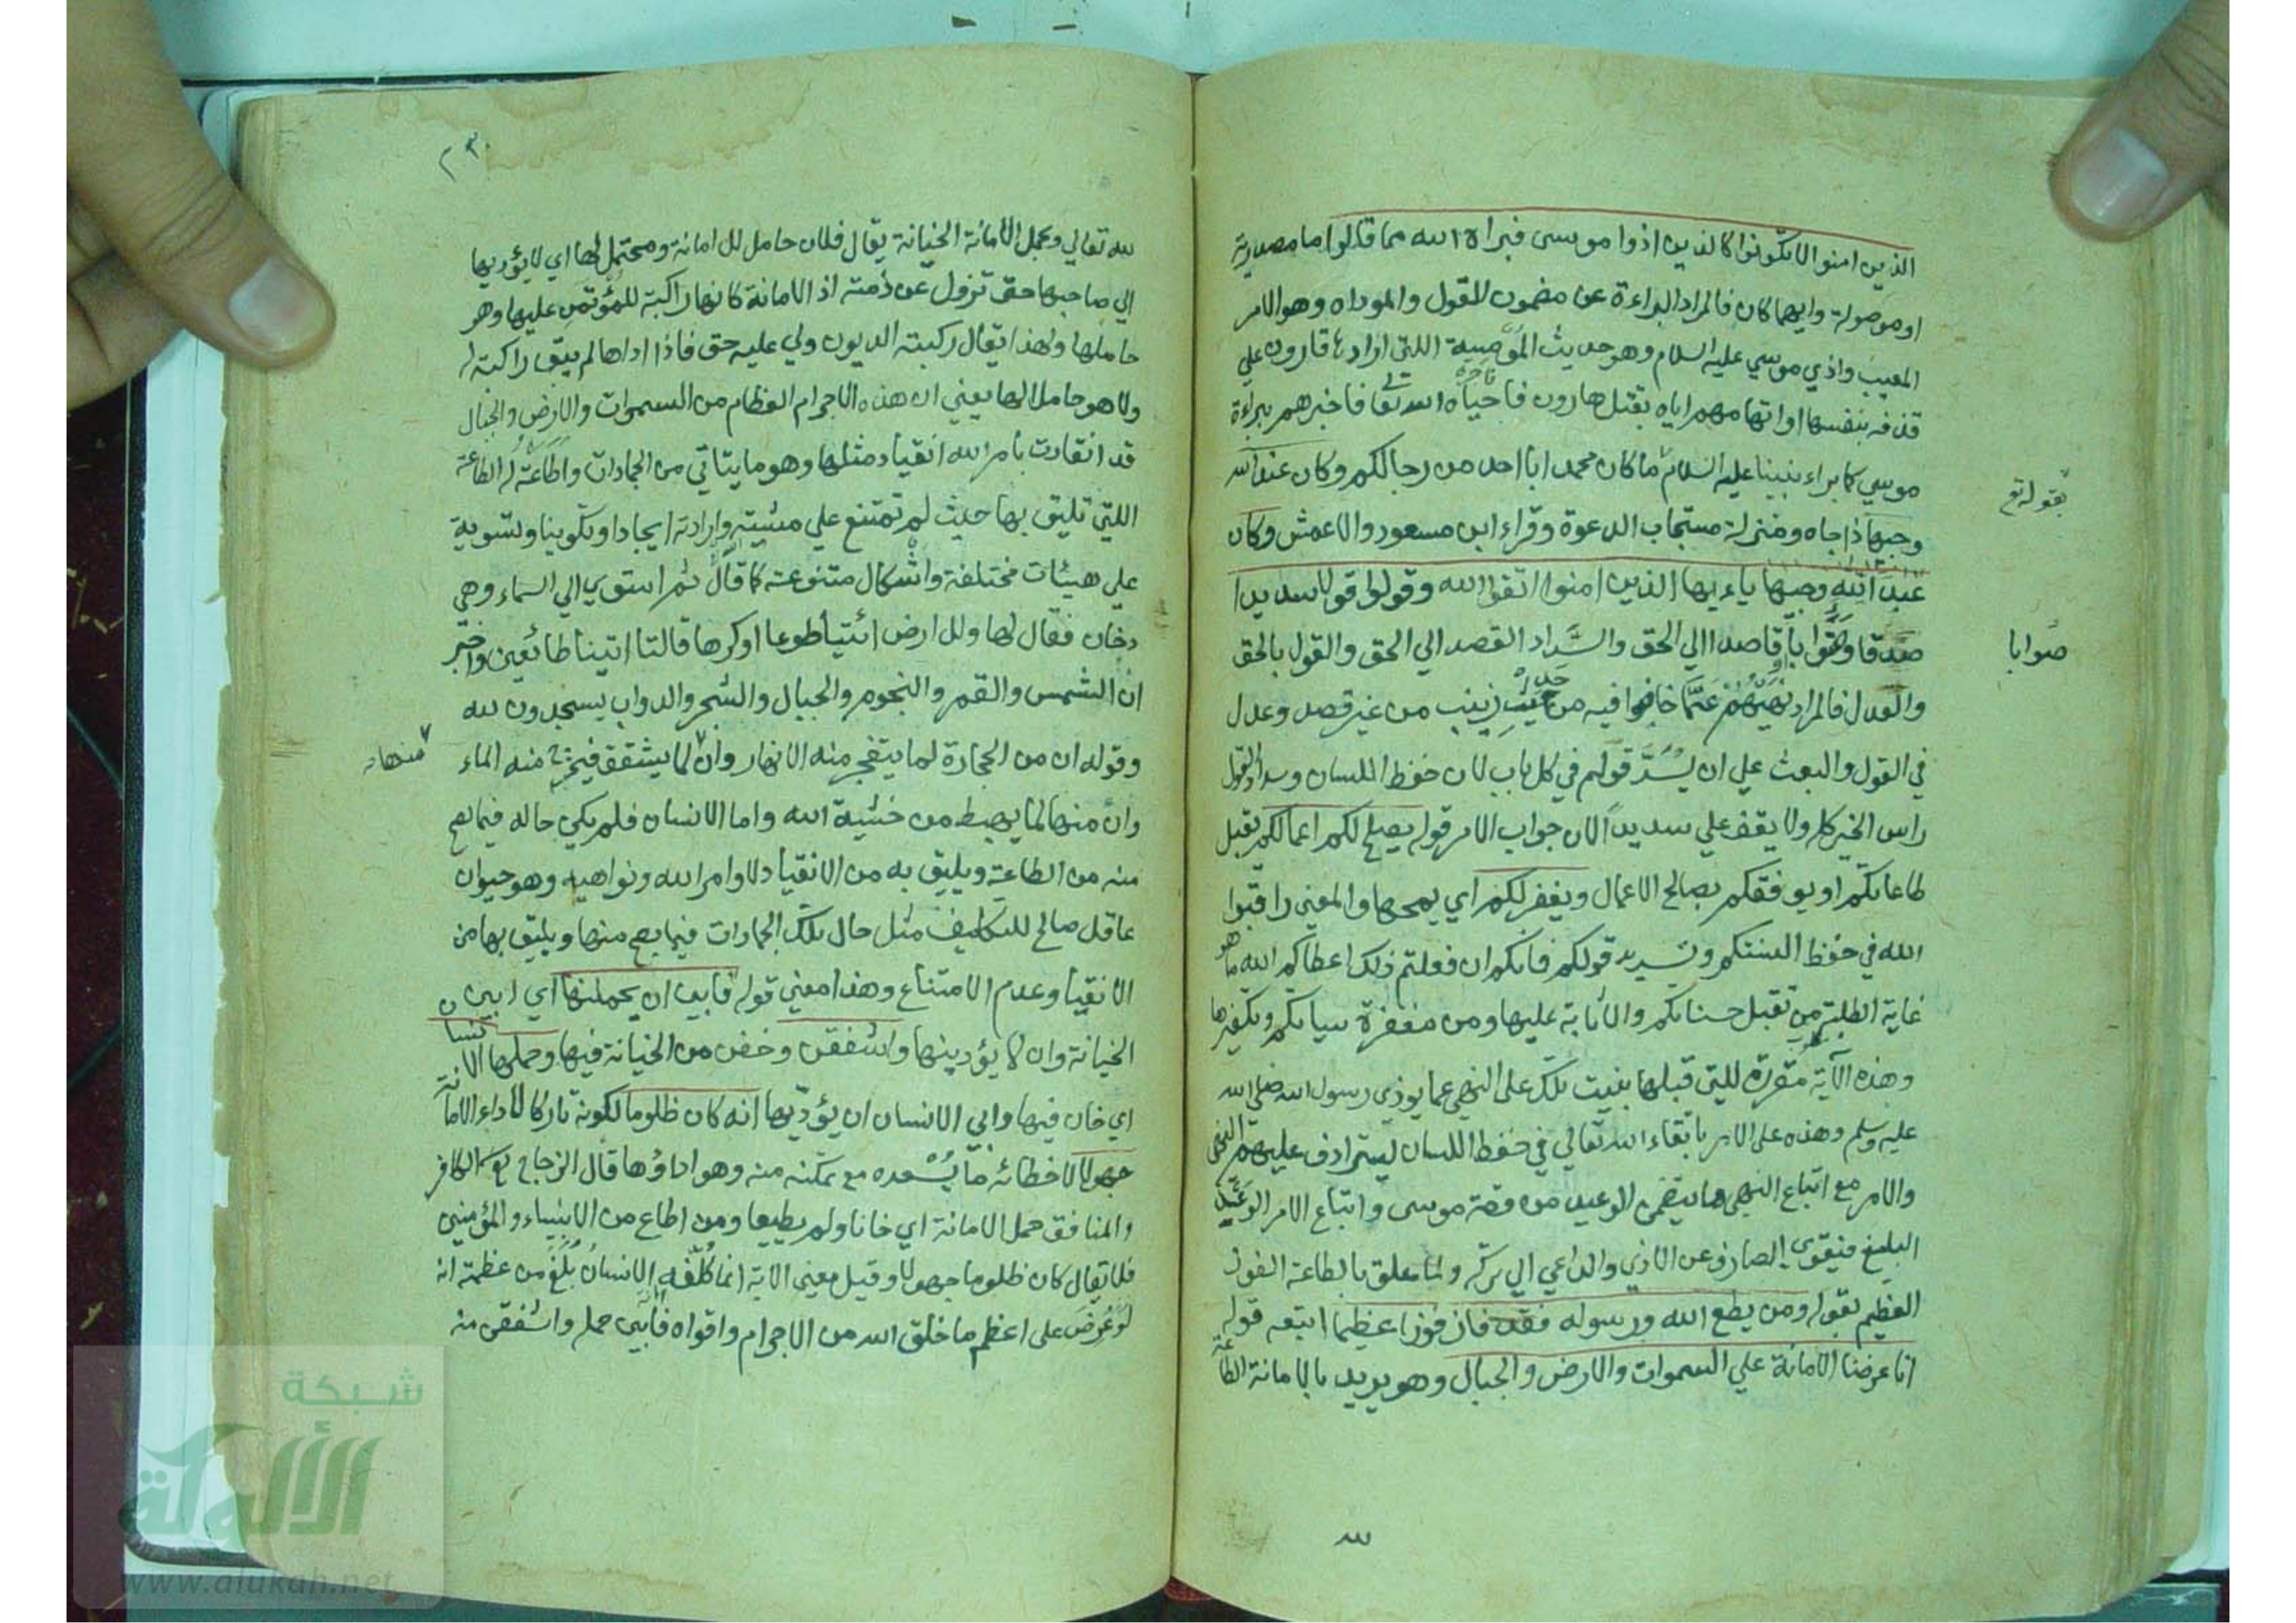 الذين امنوا لا تكونوا كالذين اذوا موسى فبراه الله مما قالوا ما مصدرية
او موصولة وايهما كان فالمراد البراءة عن مضمون القول والموداه وهو الامر
المعيب واذي موسي عليه السلام وهو حديث المومسة اللتي ارادها قارون علي
قذفه بنفسها او اتهامهم اياه بقتل هارون فاحياه الله تعا فاخبرهم ببراءة
موسي كما براء نبينا عليه السلام ما كان محمد ابا احد من رجالكم وكان عند الله
بقوله تع
وجيها ذا جاه ومنزلة مستجاب الدعوة وقراء ابن مسعود والاعمش وكان
عبد الله وجيها ياءيها الذين امنوا اتقوا الله وقولوا قولا سديدا
صدقا وصوابا قاصدا الي الحق والسداد القصد الي الحق والقول بالحق
صوابا
والعدل فالمراد نهيهم عما خاضوا فيه من حديث زينب من غير قصد وعدل
في القول والبعث علي ان يسد قولهم في كل باب لان حفظ اللسان وسداد القول
راس الخير كله ولا يقف علي سديدا لان جواب الامر قوله يصلح لكم اعمالكم يقبل
طاعاتكم او يوفقكم بصالح الاعمال ويغفر لكم اي يمحها والمعني راقبوا
الله في حفظ السنتكم وتسديد قولكم فانكم ان فعلتم ذلك اعطاكم الله ما هو
غاية الطلبة من تقبل حسناتكم والاثابة عليها ومن مغفرة سياتكم وتكفيرها
وهذه الآية مقررة للتي قبلها بنيت تلك علي النهي عما يوذي رسول الله صلي الله
عليه وسلم وهذه علي الامر باتقاء الله تعالي في حفظ اللسان ليترادف عليهم النهي
والامر مع اتباع النهي ما يتضمن الوعيد من قصة موسى واتباع الامر الوعد
البليغ فيقوي الصارف عن الاذي والداعي الي تركه ولما علق بالطاعة الفوز
العظيم بقوله ومن يطع الله ورسوله فقد فاز فوزا عظيما اتبعه قوله
انا عرضنا الامانة علي السموات والارض والجبال وهو يريد بالامانة الطاعة
لله
لله تعالي وبحمل الامانة الخيانة يقال فلان حامل للامانة ومحتمل لها اي لا يؤديها
الي صاحبها حتى تزول عن ذمته اذ الامانة كانها راكبة للمؤتمن عليها وهو
حاملها ولهذا يقال ركبته الديون ولي عليه حق فاذا اداها لم يبق راكبة له
ولا هو حامل لها يعني ان هذه الاجرام العظام من السموات والارض والجبال
قد انقادت بامر الله انقياد مثلها وهو ما يتاتي من الجمادات واطاعت له الطاعة
اللتي تليق بها حيث لم تمتنع علي مشيته وارادته ايجادا وتكوينا وتسوية
علي هيئات مختلفة واشكال متنوعة كما قال ثم استوي الي السماء وهي
دخان فقال لها وللارض ائتيا طوعا او كرها قالتا اتينا طائعين واخبر
ان الشمس والقمر والنجوم والجبال والشجر والدواب يسجدون لله
وقوله ان من الحجارة لما يتفجر منه الانهار وان لما يشقق فيخرج منه الماء
منها
وان منها لما يهبط من خشية الله واما الانسان فلم يكن حاله فيما يصح
منه من الطاعة ويليق به من الانقياد لاوامر الله ونواهيه وهو حيوان
عاقل صالح للتكليف مثل حال تلك الجمادات فيما يصح منها ويليق بها من
الانقياد وعدم الامتناع وهذا معني قوله فابين ان يحملنها اي ابين
الخيانة وان لا يؤدينها واشفقن وخفن من الخيانة فيها وحملها الانسان
اي خان فيها وابي الانسان ان يؤديها انه كان ظلوما لكونه تاركا لاداء الامانة
جهولا لاخطائه ما يسعده مع تمكنه منه وهو اداؤها قال الزجاج الكافر
والمنافق حمل الامانة اي خانا ولم يطيعا ومن اطاع من الانبياء والمؤمنين
فلا يقال كان ظلوما جهولا وقيل معني الاية انما كلفه الانسان بلغ من عظمته انه
لو عرض علي اعظم ما خلق الله من الاجرام واقواه فابي حمله واشفق منه
شبكة
الألوكة
www.alukah.net